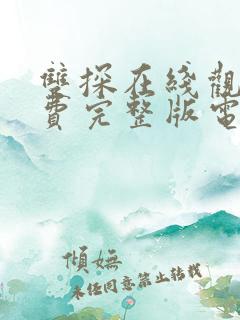 雙探在綫觀
費完整版電
傾嫵
未任同意禁止轉載